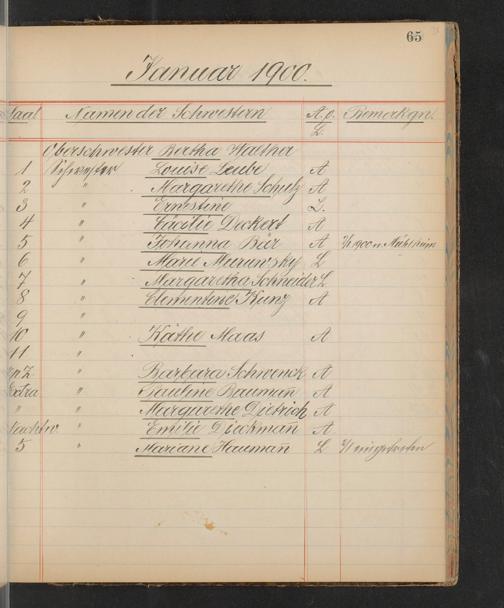 65
Januar 1900.
Saal Namen der Schwestern A. o. L. Bemerkgn.
Oberschwester Bertha Walther
1 Schwester Louise Leube A
2 " Margarethe Schulz A
3 " Ernestine L.
4 " Cäcilie Deckert A
5 " Johanna Bär A 1900 n. Mülheim
6 " Marie L
7 " Margaretha Schneider L
8 " Clementine Kunz A
9 "
10 " Käthe Maas A
11 "
" Barbara Schwenck A
Extra " Pauline Baumañ A
" " Margarethe Dietrich A
" Emilie Dieckmañ A
5 " Mariane Haumañ L eingetreten